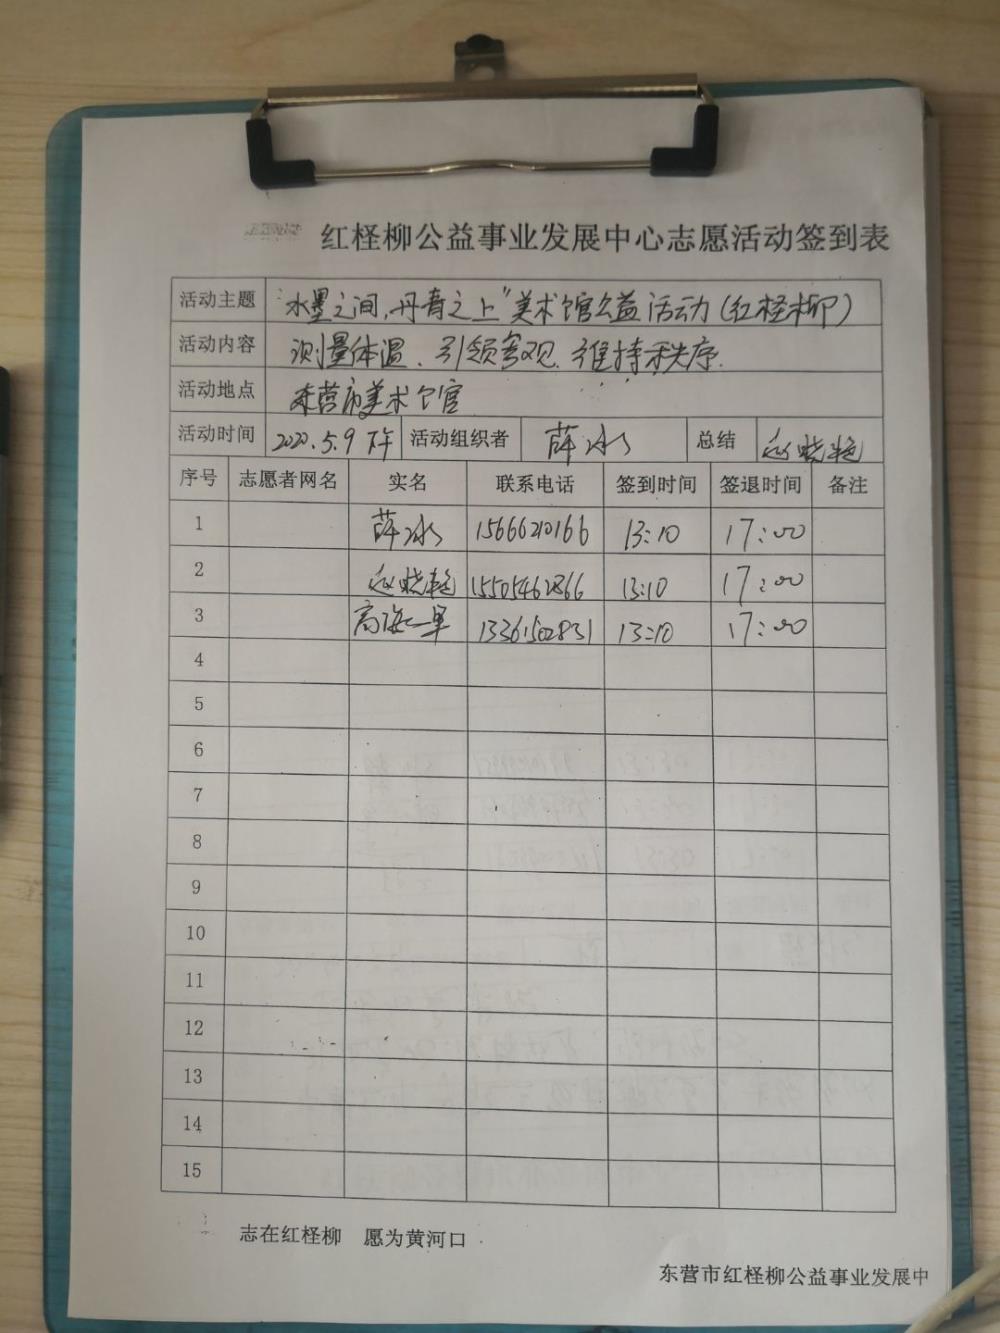 红柽柳公益事业发展中心志愿活动签到表
活动主题 "水墨之间,丹青之上"美术馆公益活动(红柽柳)
活动内容 测量体温、引领参观、维持秩序.
活动地点 东营市美术馆
活动时间 2020.5.9 下午 活动组织者 薛冰 总结 赵晓艳
序号 志愿者网名 实名 联系电话 签到时间 签退时间 备注
1 薛冰 15666210166 13:10 17:00
2 赵晓艳 15505462866 13:10 17:00
3 高海军 13361502831 13:10 17:00
4
5
6
7
8
9
10
11
12
13
14
15
志在红柽柳 愿为黄河口
东营市红柽柳公益事业发展中